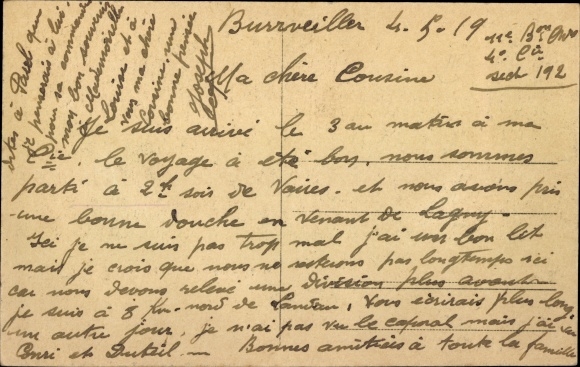 Burrveiller 4.5.19
11e Bon
4e Cie
sect 192
Ma chère Cousine
Je suis arrivé le 3 au matin à ma
Cie, le voyage à été bon, nous sommes
parti à 2h soir de Vaires. et nous avons pris
une bonne douche en venant de Lagny.
Ici je ne suis pas trop mal j'ai un bon lit
mais je crois que nous ne resterons pas longtemps ici
car nous devons relevé une division plus avant
je suis à 8 Km. nord de Landau, Vous écrirais plus long
un autre jour, je n'ai pas vu le caporal mais j'ai vu
et Duteil — Bonnes amitiées à toute la famille
dites à Paul que
je penserais à lui
pour sa
mon bon souvenir
à Mademoiselle
Louise et à
vous ma chère
Cousine, une
bonne pensée
Joseph